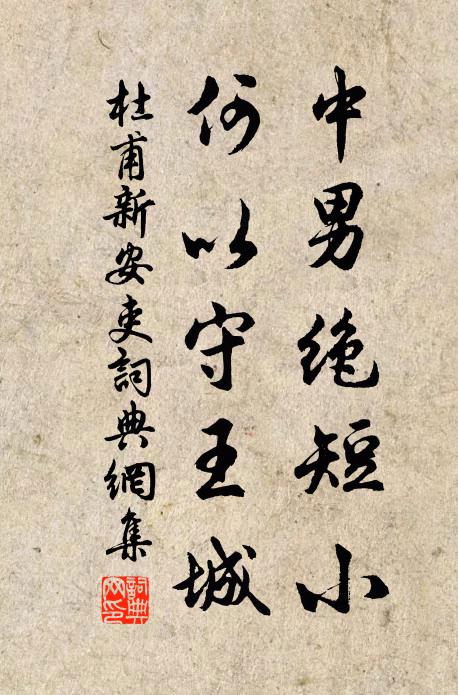 中男绝短小
何以守王城
杜甫新安吏詞典網集
詞典
网印